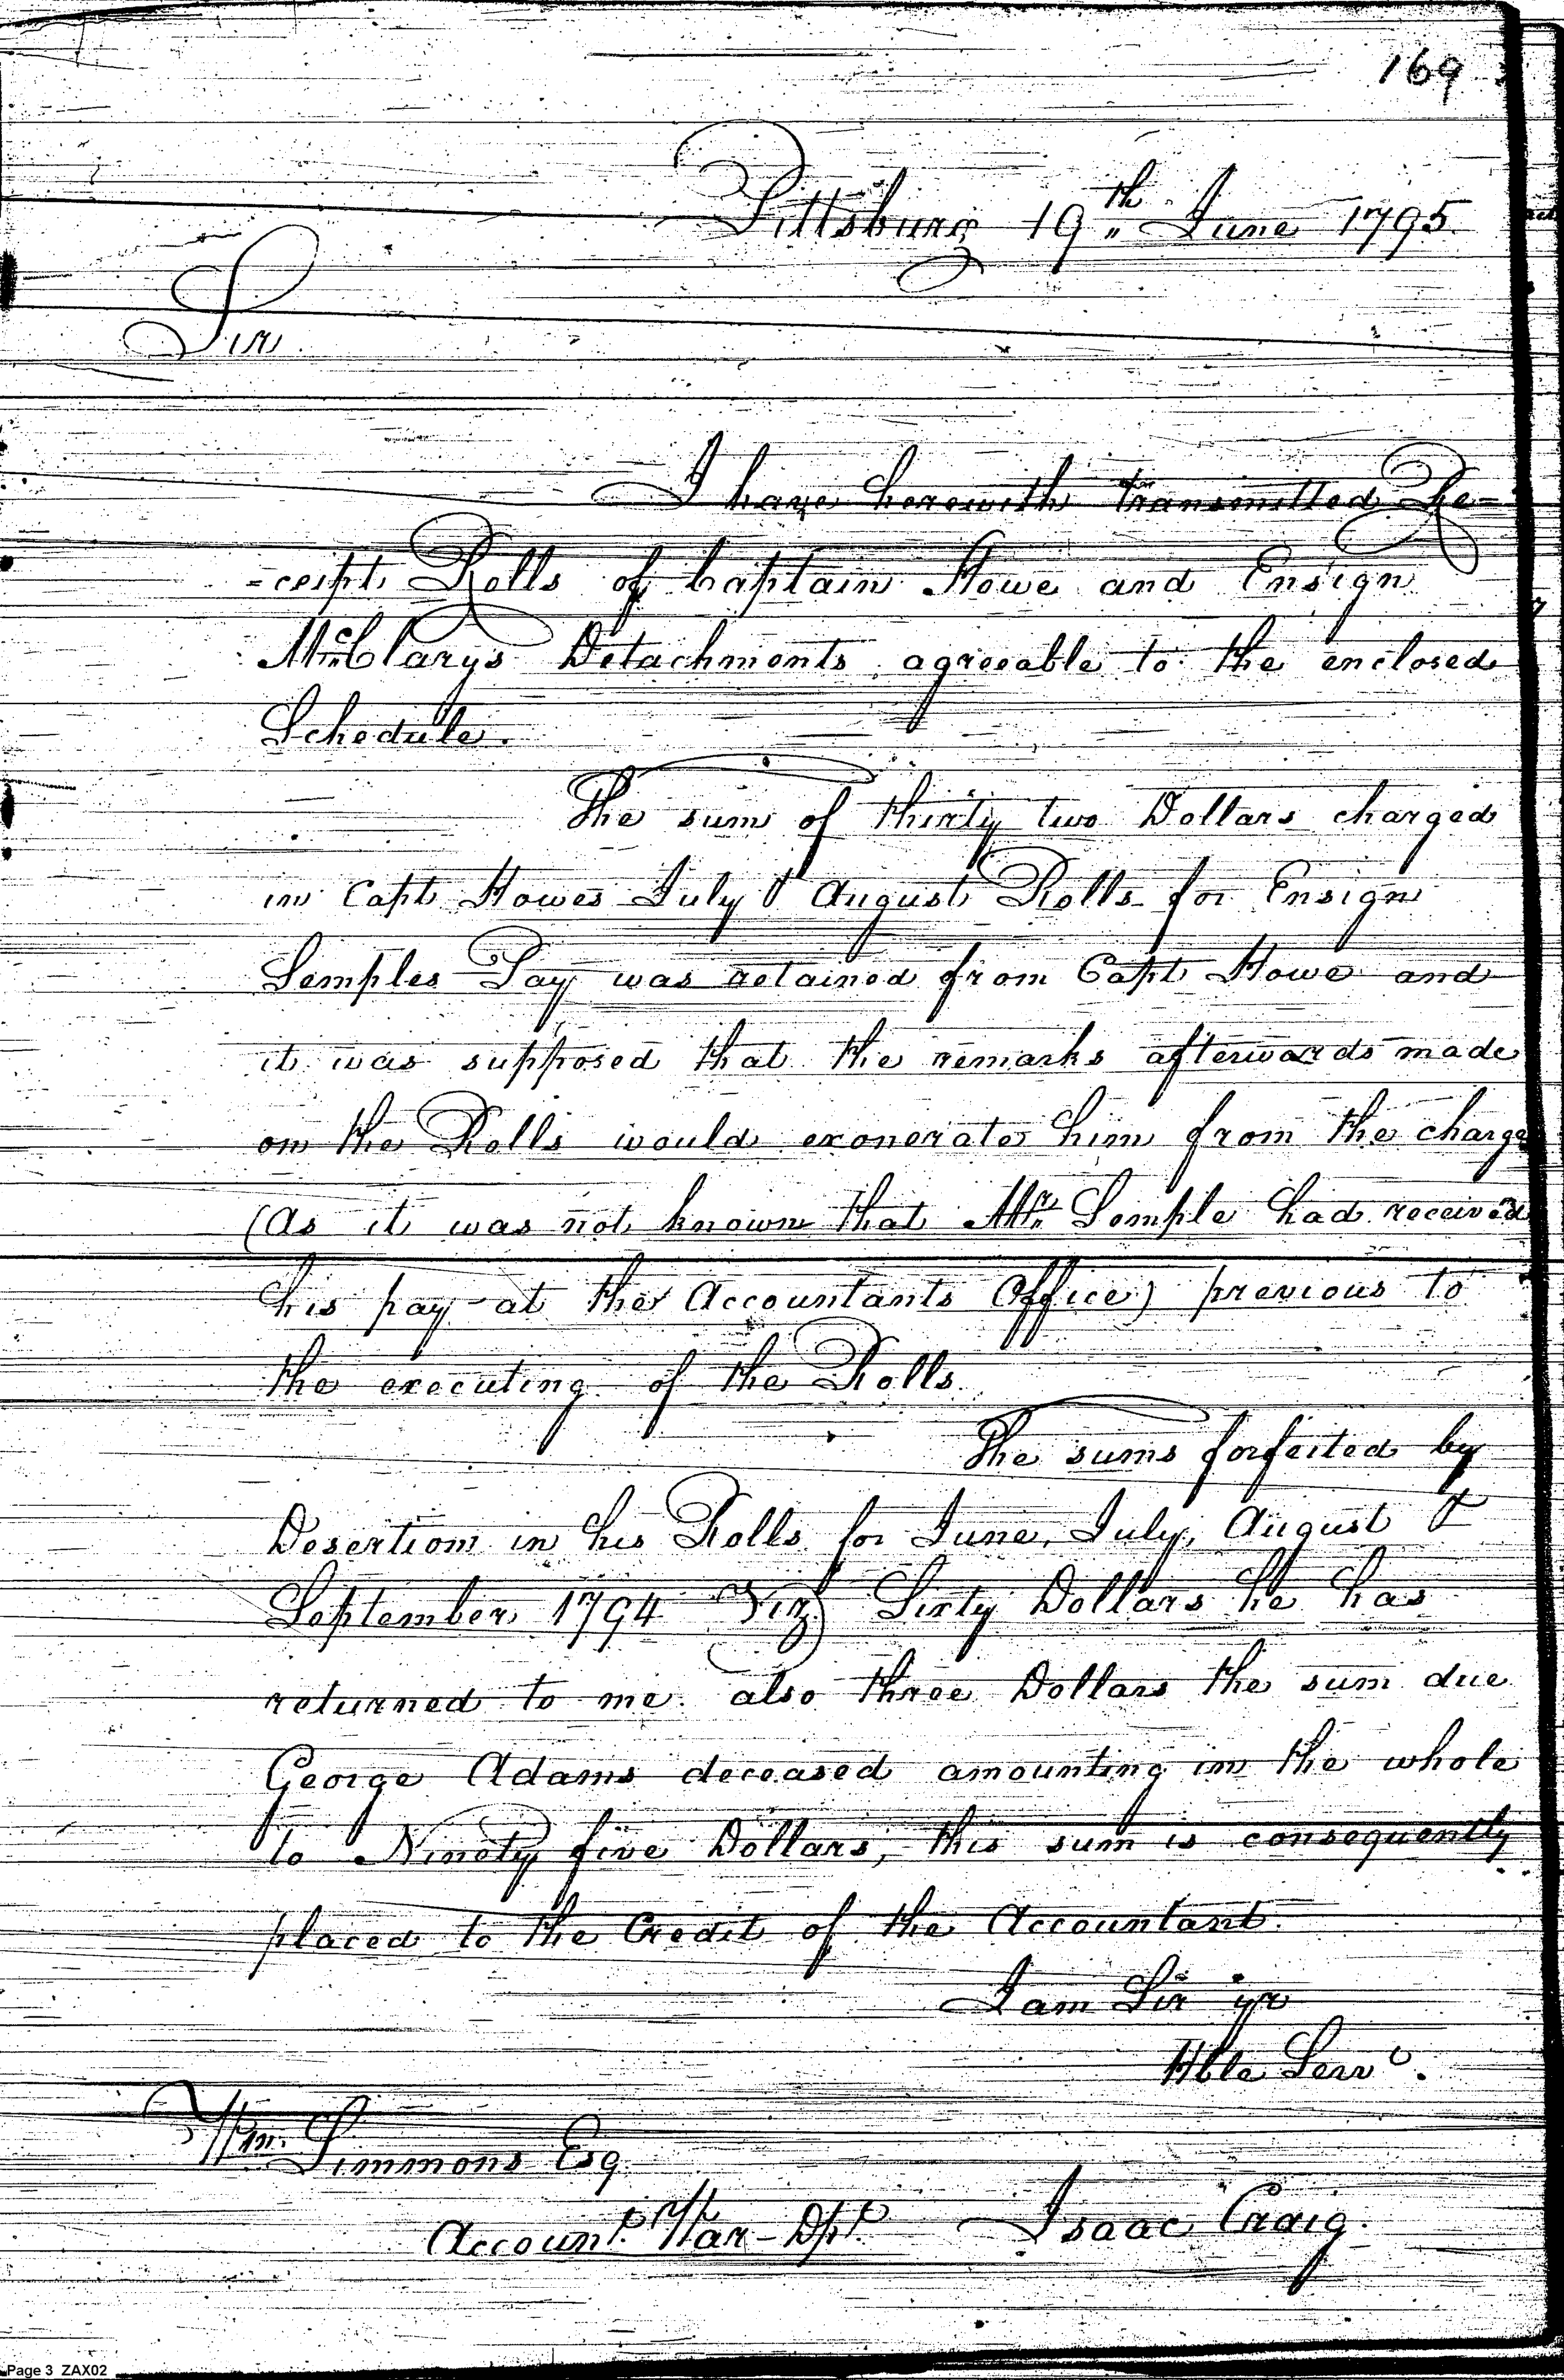 169
Pittsburg 19th June 1795
Sir
I have herewith transmitted Re=
=ceipt Rolls of Captain Howe and Ensign
McClarys Detachments agreeable to the enclosed
Schedule.
The sum of thirty two Dollars charged
in Capt Howes July & August Rolls for Ensign
Semples Pay was retained from Capt Howe and
it was supposed that the remarks afterwards made
on the Rolls would exonerate him from the charge
(As it was not known that Mr Semple had received
his pay at the Accountants Office) previous to
the executing of the Rolls.
The sums forfeited by
Desertion in his Rolls for June, July, August &
September 1794 Viz) Sixty Dollars he has
returned to me. also three Dollars the sum due
George Adams deceased amounting in the whole
to Ninety five Dollars, this sum is consequently
placed to the Credit of the Accountant.
I am Sir yr
Hble Servt.
Wm. Simmons Esq
Accountt. War-Dpt.
Isaac Craig.
Page 3 ZAX02